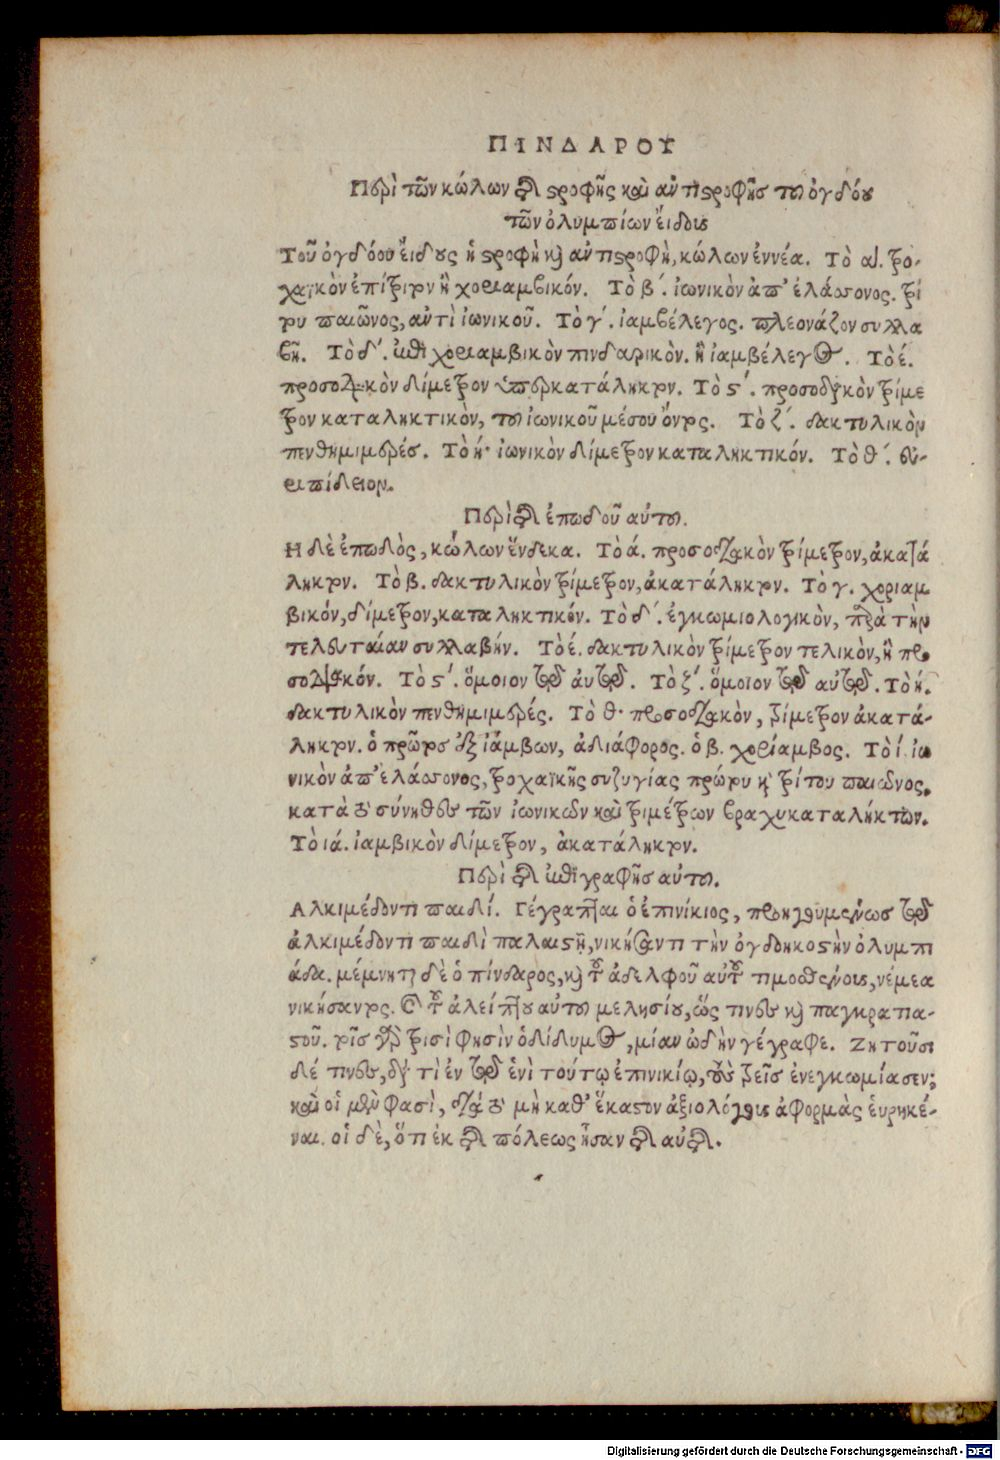 ΠΙΝΔΑΡΟΥ
Περὶ τῶν κώλων τῆς στροφῆς καὶ ἀντιστροφῆς τοῦ ὀγδόου
τῶν ὀλυμπίων εἴδους
Τοῦ ὀγδόου εἴδους ἡ στροφὴ καὶ ἀντιστροφὴ, κώλων ἐννέα. Τὸ αʹ. τρο-
χαϊκὸν ἐπίτριτον ἢ χοριαμβικόν. Τὸ βʹ. ἰωνικὸν ἀπ' ἐλάσσονος. τρί
του παιῶνος, ἀντὶ ἰωνικοῦ. Τὸ γʹ. ἰαμβέλεγος. πλεονάζον συλλα
βῇ. Τὸ δʹ. ἐπιχοριαμβικὸν πινδαρικὸν. ἢ ἰαμβέλεγος. Τὸ έ.
προσοδιακὸν δίμετρον ὑπερκατάληκτον. Τὸ ϛʹ. προσοδιακὸν τρίμε
τρον καταληκτικὸν, τοῦ ἰωνικοῦ μέσου ὄντος. Τὸ ζʹ. δακτυλικὸν
πενθημιμερές. Τὸ ή· ἰωνικὸν δίμετρον καταληκτικόν. Τὸ θʹ. εὐ-
ριπίδειον.
Περὶ τῆς ἐπωδοῦ αὐτοῦ.
Η δὲ ἐπωδὸς, κώλων ἕνδεκα. Τὸ ά. προσοδιακὸν τρίμετρον, ἀκατά
ληκτον. Τὸ β. δακτυλικὸν τρίμετρον, ἀκατάληκτον. Τὸ γ. χοριαμ
βικόν, δίμετρον, καταληκτικόν. Τὸ δʹ. ἐγκωμιολογικὸν, παρὰ τὴν
τελευταίαν συλλαβήν. Τὸ έ. δακτυλικὸν τρίμετρον τελικὸν, ἢ προ
σοδιακόν. Τὸ ϛʹ. ὅμοιον τῷ αὐτῷ. Τὸ ζʹ. ὅμοιον τῷ αὐτῷ. Τὸ ή.
δακτυλικὸν πενθημιμερές. Τὸ θ· προσοδιακὸν, τρίμετρον ἀκατά-
ληκτον. ὁ πρῶτος ἐξ ἰάμβων, ἀδιάφορος. ὁ β. χορίαμβος. Τὸ ί. ἰω
νικὸν ἀπ' ἐλάσσονος, τροχαϊκῆς συζυγίας πρώτου καὶ τρίτου παιῶνος.
κατὰ τὸ σύνηθες τῶν ἰωνικῶν καὶ τριμέτρων βραχυκαταλήκτων.
Τὸ ιά. ἰαμβικὸν δίμετρον, ἀκατάληκτον.
Περὶ τῆς ἐπιγραφῆς αὐτοῦ.
Αλκιμέδοντι παιδί. Γέγραπται ὁ ἐπινίκιος, προηγουμένως τῷ
ἀλκιμέδοντι παιδὶ παλαιστῇ, νικήσαντι τὴν ὀγδοηκοστὴν ὀλυμπι
άδα. μέμνηται δὲ ὁ πίνδαρος, καὶ τοῦ ἀδελφοῦ αὐτοῦ τιμοσθένους, νέμεα
νικήσαντος. καὶ τοῦ ἀλείπτου αὐτοῦ μελησίου, ὥς τινες καὶ παγκρατια-
στοῦ. τοῖς γὰρ τρισὶ φησὶν ὁ δίδυμος, μίαν ᾠδὴν γέγραφε. Ζητοῦσι
δέ τινες, διὰ τί ἐν τῷ ἑνὶ τούτῳ ἐπινικίῳ, τοὺς τρεῖς ἐνεγκωμίασεν;
καὶ οἱ μὲν φασὶ, διὰ τὸ μὴ καθ' ἕκαστον ἀξιολόγους ἀφορμὰς ἑυρηκέ-
ναι. οἱ δὲ, ὅτι ἐκ τῆς πόλεως ἦσαν τῆς αὐτῆς.
Digitalisierung gefördert durch die Deutsche Forschungsgemeinschaft - DFG